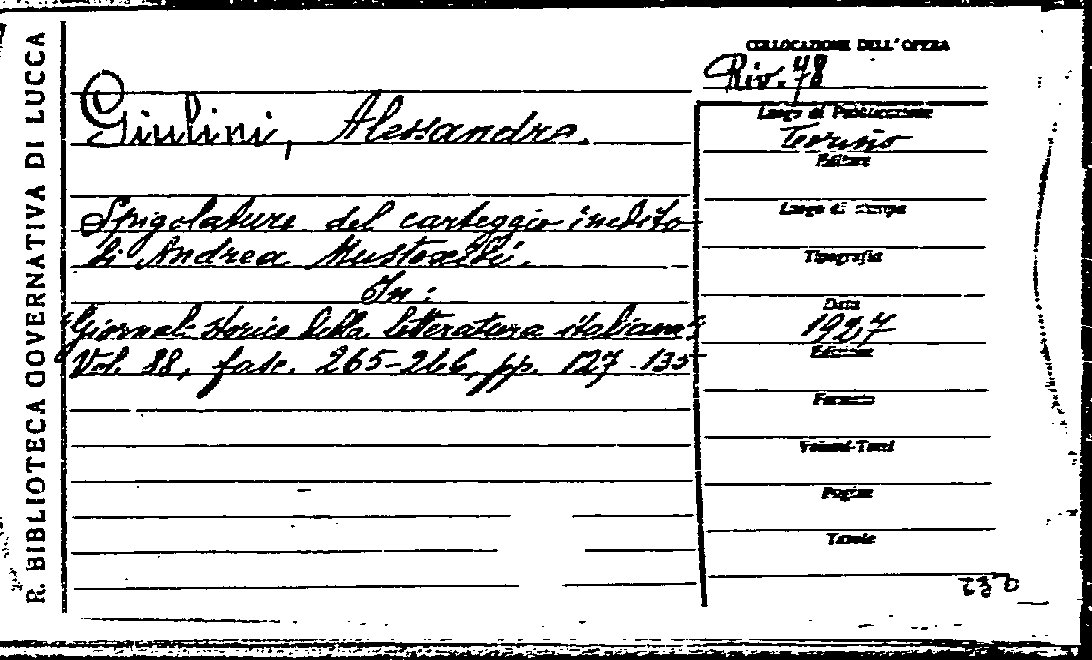 R. BIBLIOTECA GOVERNATIVA DI LUCCA
COLLOCAZIONE DELL'OPERA
Riv. 78
Giulini, Alessandro.
Spigolature del carteggio inedito
di Andrea Mustoxidi.
In:
"Giornale storico della letteratura italiana"
Vol. 88, fasc. 265-266, pp. 127-135
Luogo di Pubblicazione
Torino
Editore
Luogo di stampa
Tipografia
Data
1927
Edizione
Formato
Volumi-Tomi
Pagine
Tavole